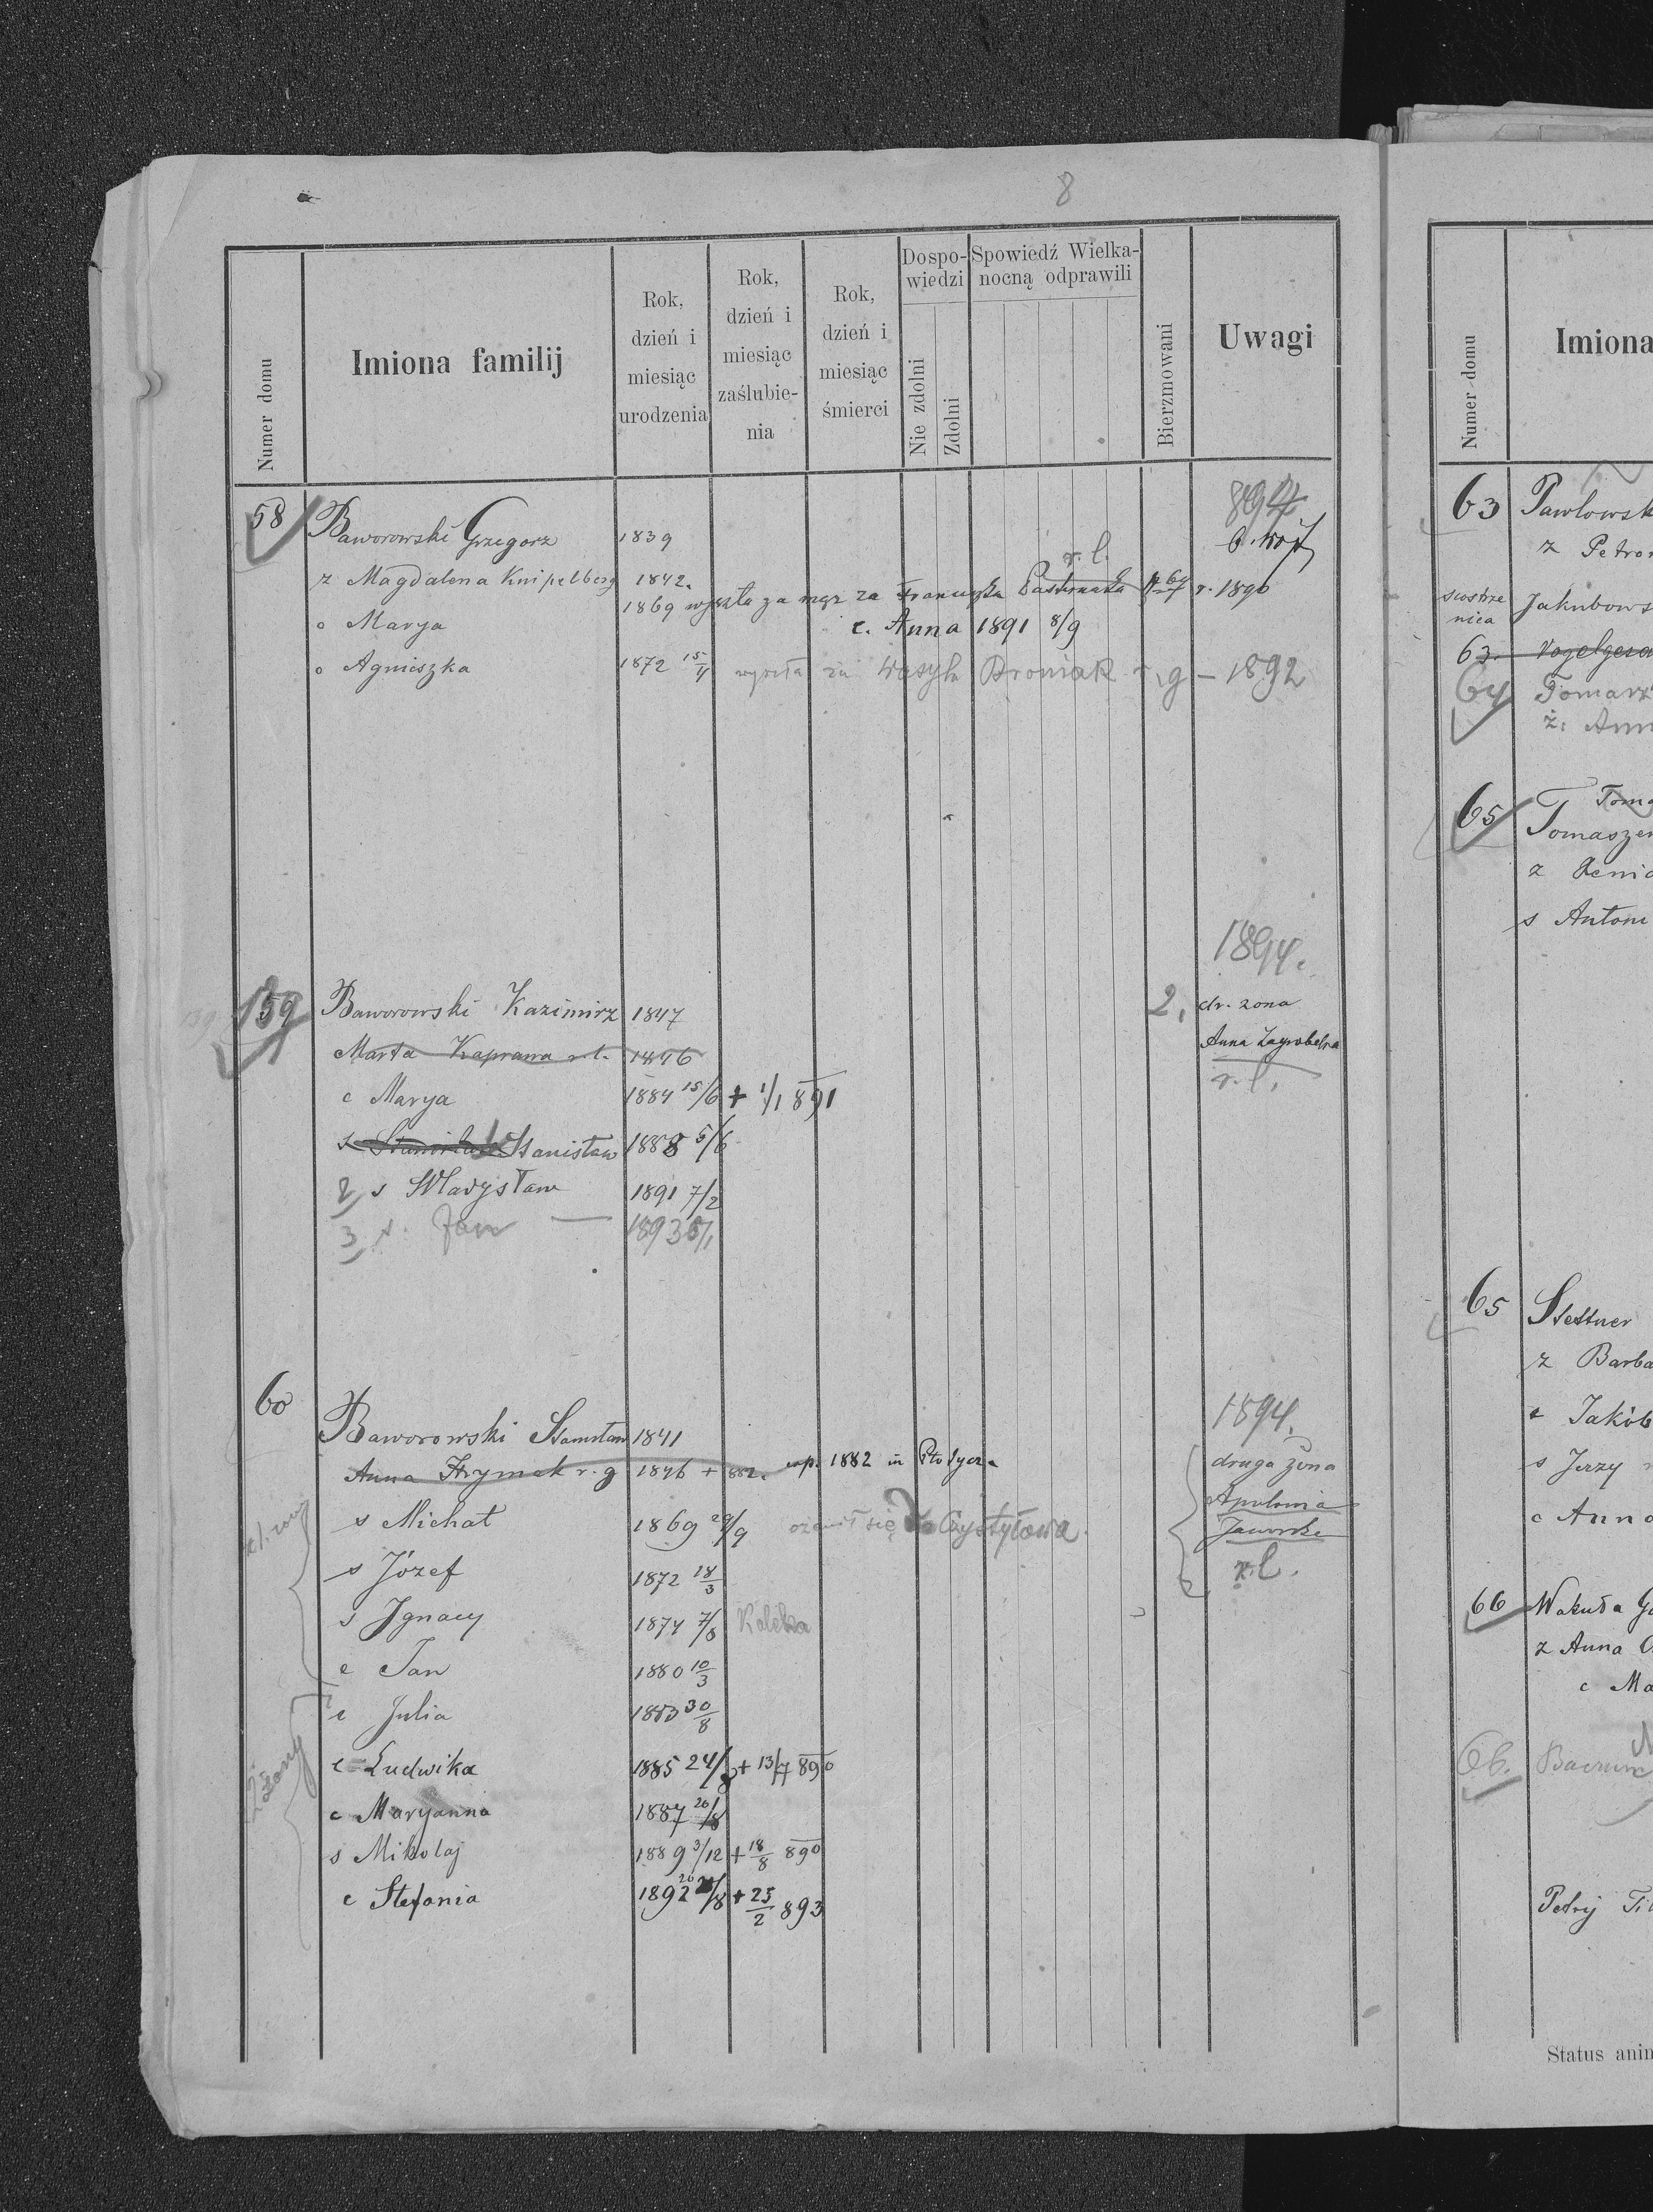 8
Numer domu
Imiona familij
Rok, dzień i miesiąc urodzenia
Rok, dzień i miesiąc zaślubie-nia
Rok, dzień i miesiąc śmierci
Dospo-wiedzi
Nie zdolni
Zdolni
Spowiedź Wielka-nocną odprawili
Bierzmowani
Uwagi
894
58 Baworowski Grzegorz 1839
z Magdalena Knipelberg 1842.
r. l.
c Marya 1869 wyszła za mąż za Franciszka Pasternaka r. 1890
c. Anna 1891 8/9
c Agnieszka 1872 15/4 wyszła za Wasyla Droniak r. g – 1892
1894.
159 Baworowski Kazimirz 1847 2, dr. zona
Marta Kaprawa r. l. 1846 Anna Zagrobelna
r. l.
c Marya 1884 15/6 + 1/1 891
s Stanisław Stanisław 1888 5/6
2 s Władysław 1891 7/2
3 s. Jan — 1893
1894.
60 Baworowski Stanisław 1841
Anna Hrymak r. g 1846 + 882. cop. 1882 in Płotycza
druga żona
Apolonia
Jaworska
r. l.
z 1. żony
s Michał 1869 29/9 ożenił się do Czystyłowa.
s Józef 1872 18/3
s Ignacy 1874 7/8 Kaleka
c Jan 1880 10/3
z 2 żony
c Julia 1883 30/8
c Ludwika 1885 24/8 + 13/7 890
c Maryanna 1887 20/8
s Mikołaj 1889 3/12 + 18/8 890
c Stefania 1892 20/8 + 25/2 893
Numer domu
Imiona
63 Pawłowsk
z Petro
siostrze
nica
Jakubows
63.
64 Tomasz
ż. Ann
65 Tomaszew
z Xenia
s Antoni
65 Stettner
z Barba
c Jakób
s Jerzy
c Anna
66 Wakuła
z Anna
c Ma
66.
Petryj
Status anim